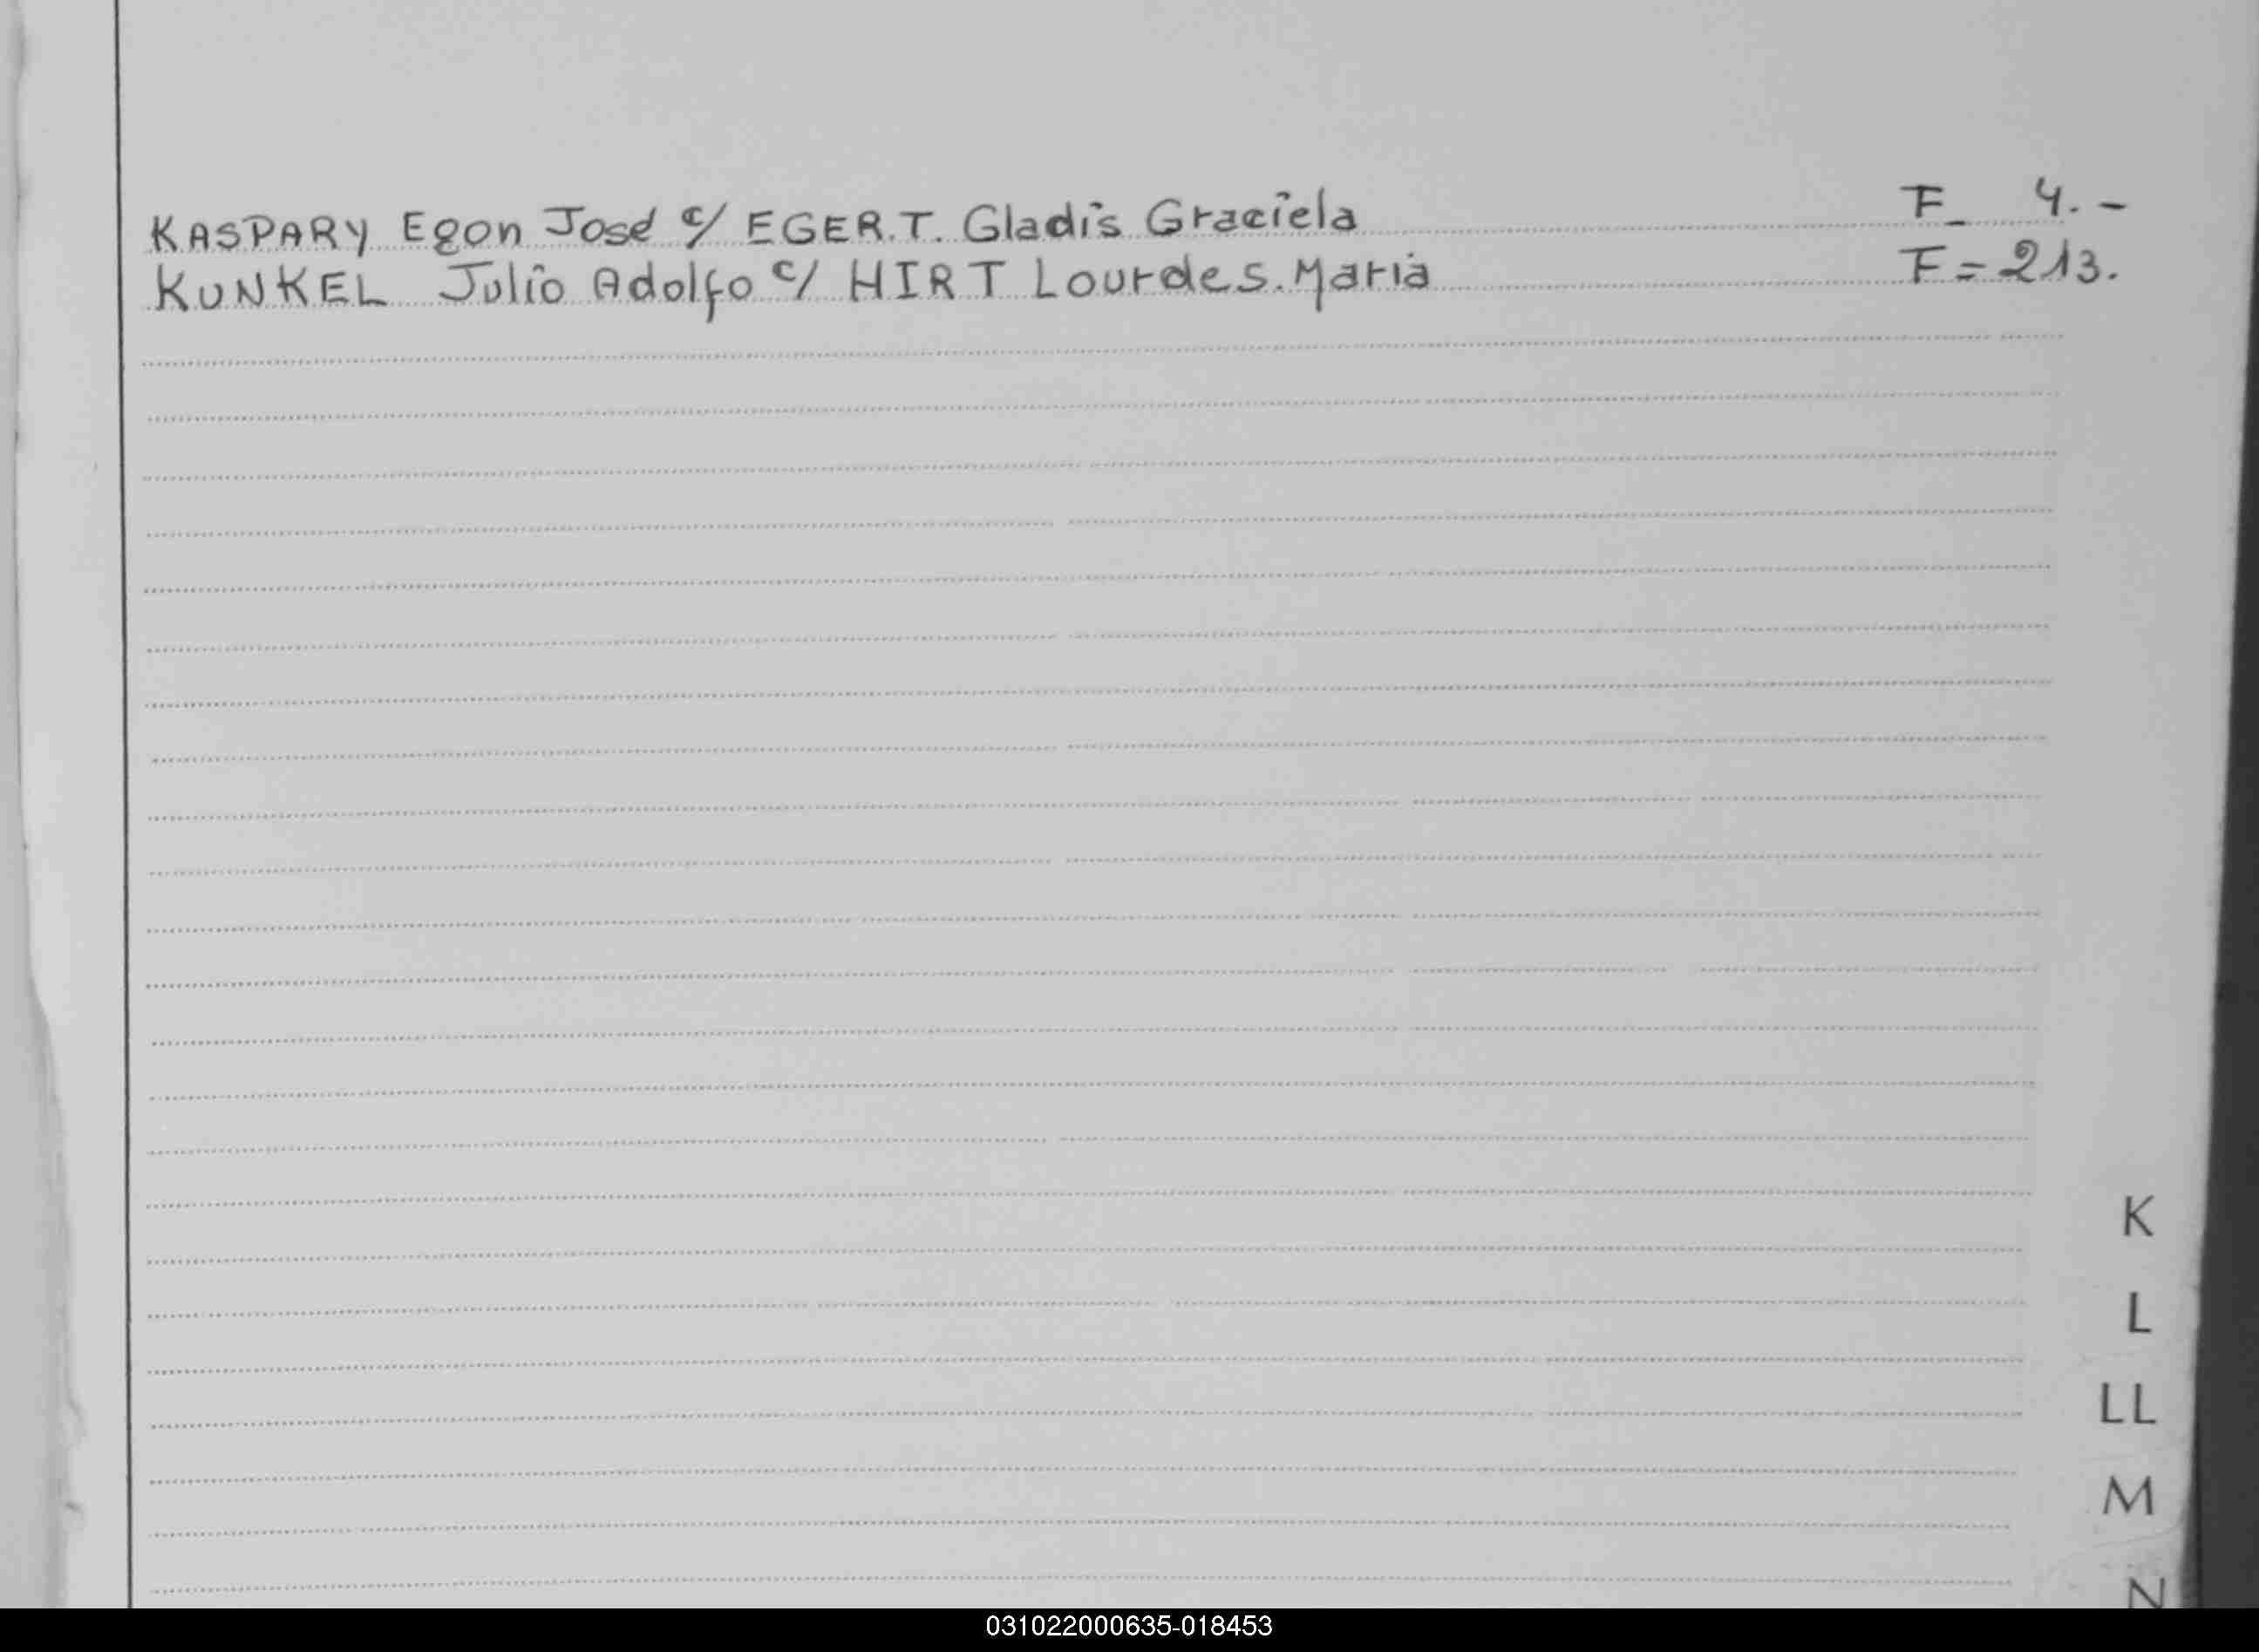 KASPARY Egon José c/ EGER.T. Gladis Graciela F_ 4.-
KUNKEL Julio Adolfo c/ HIRT Lourdes.Maria F=213.
K
L
LL
M
N
031022000635-018453